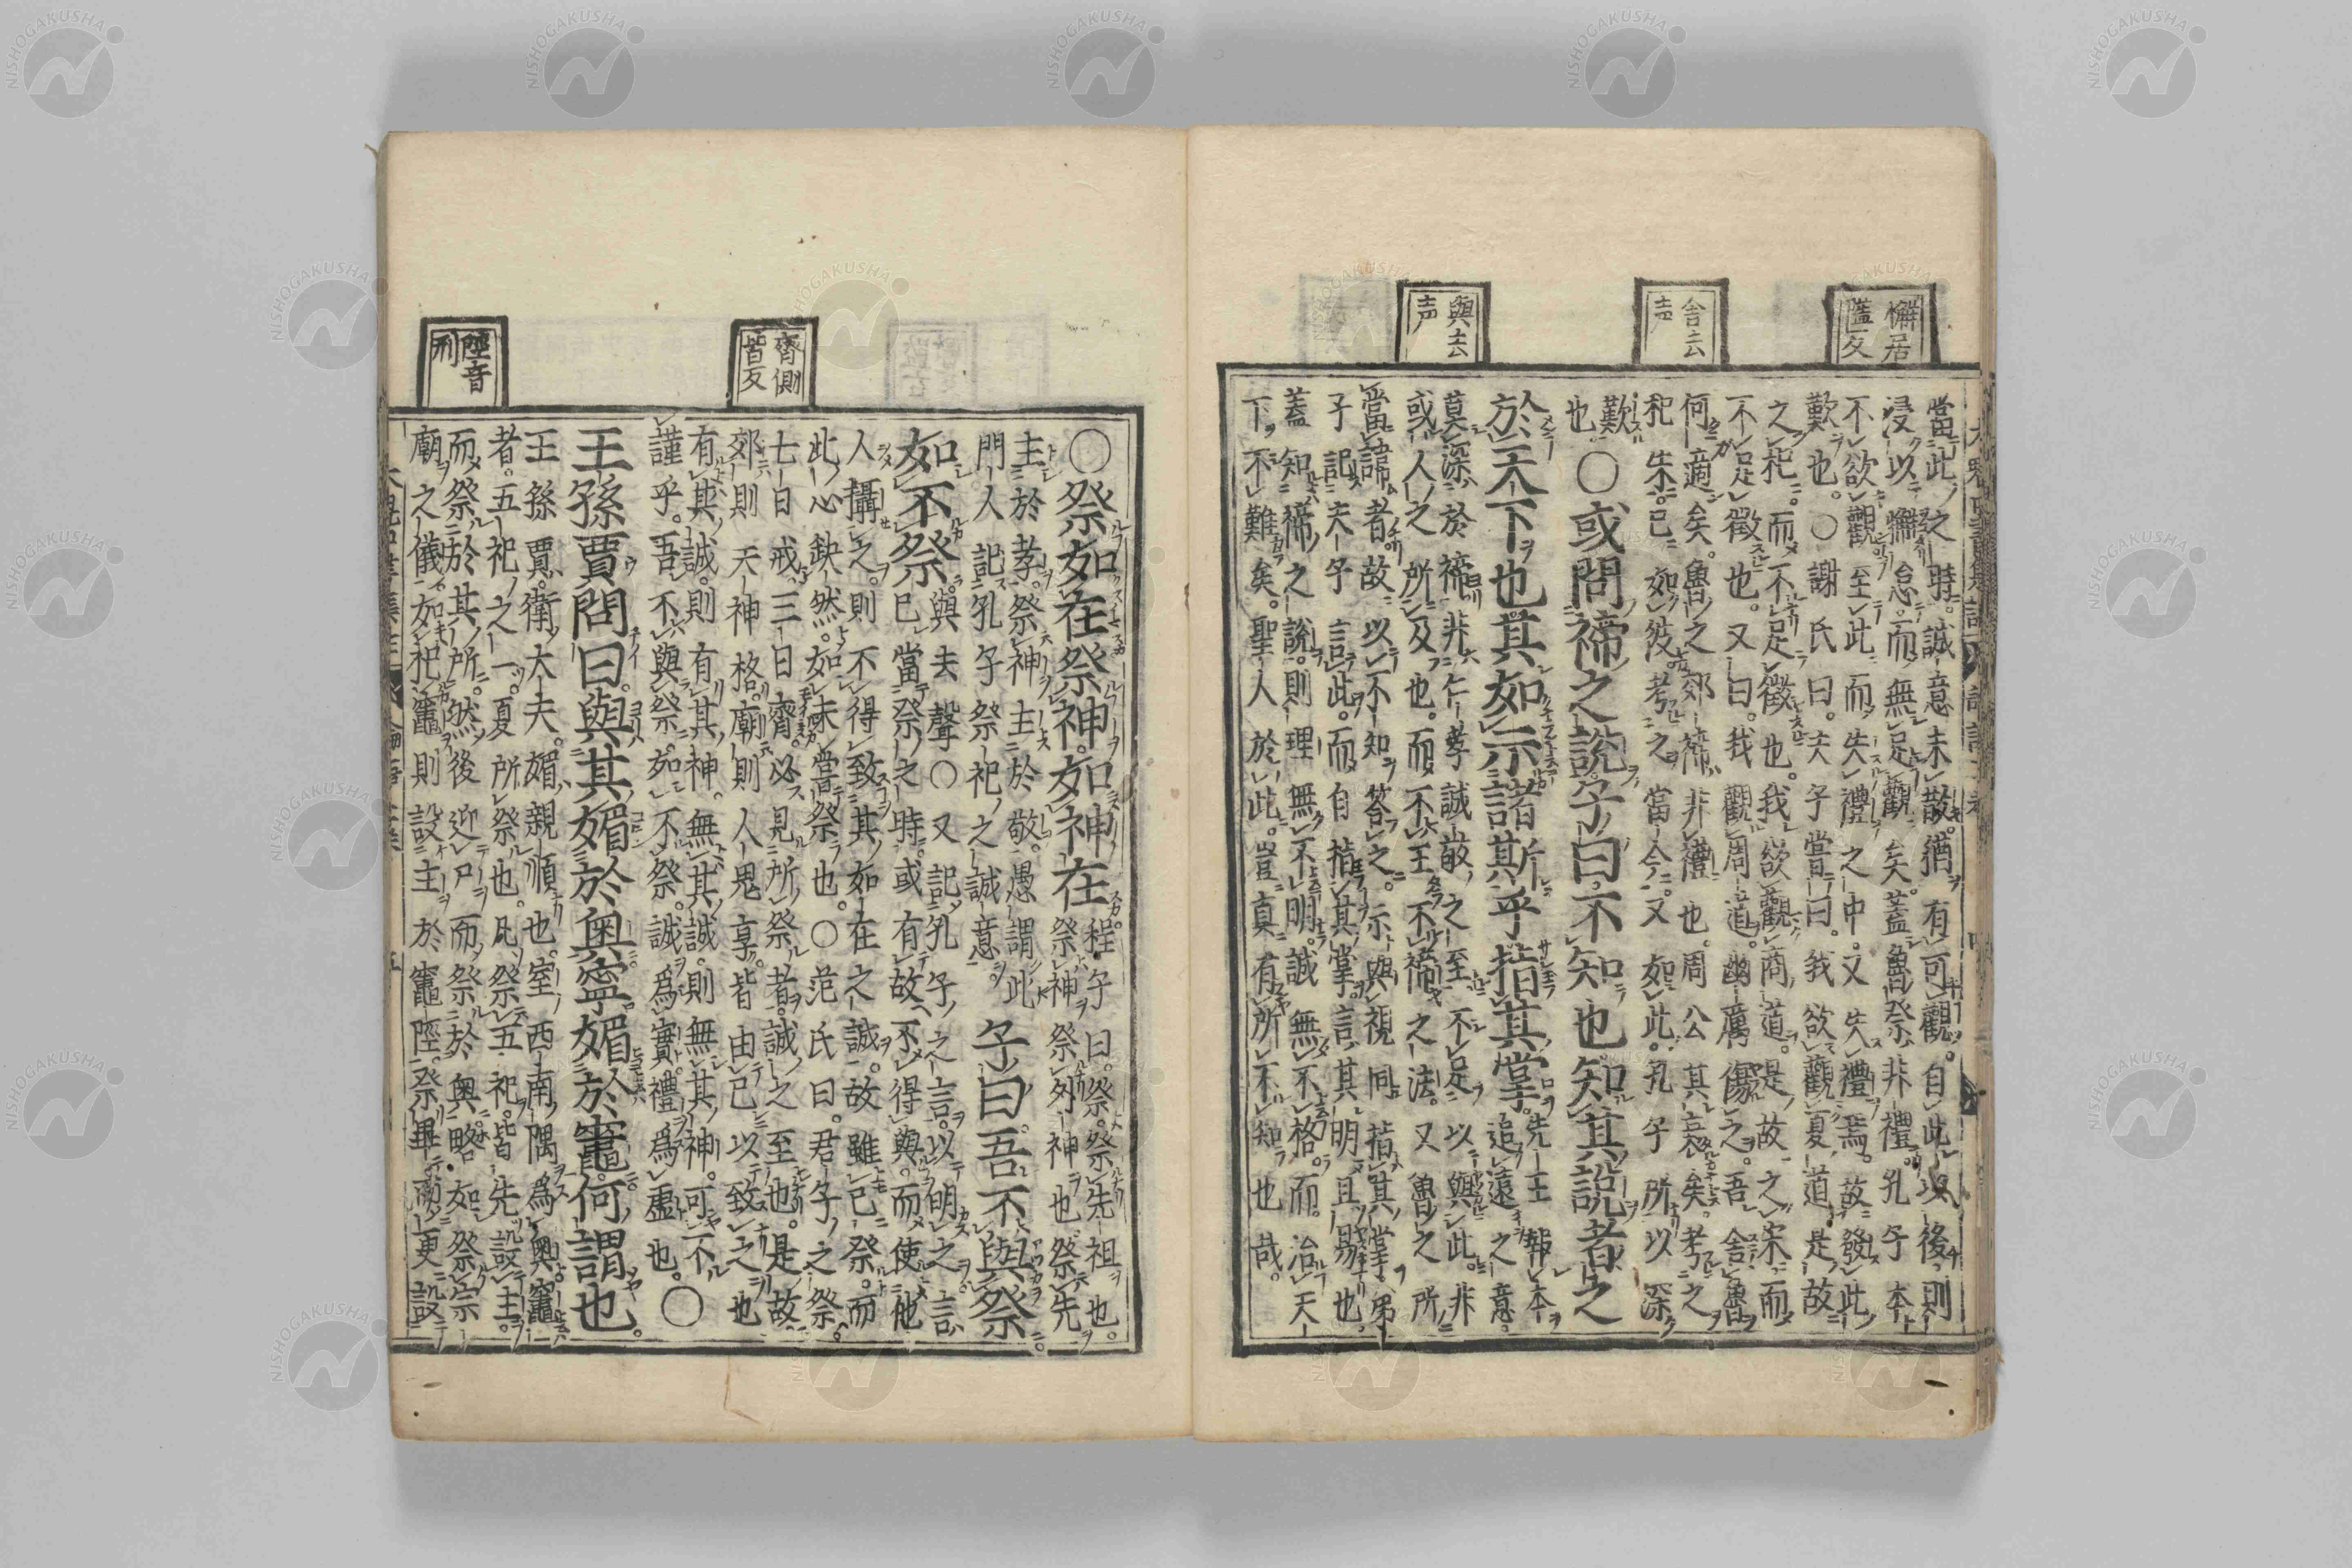 懈居
隘反
舍去
声
與去
声
當此之時。誠意未散。猶有可觀。自此以後。則
浸以懈怠。而無足觀矣。蓋魯祭非禮。孔子本
不欲觀。至此而失禮之中。又失禮焉。故發此
歎也。○謝氏曰。夫子嘗曰。我欲觀夏道。是故
之杞。而不足徵也。我欲觀商道。是故之宋。而
不足徵也。又曰。我觀周道。幽厲傷之。吾舍魯
何適矣。魯之郊禘。非禮也。周公其衰矣。考之
杞朱。已如彼。考之當今。又如此。孔子所以深
歎
也○或問禘之説子曰不知也知其説者之
於天下也其如示諸斯乎指其掌。先王報本
追遠之意。
莫深於禘。非仁孝誠敬之至。不足以與此。非
或人之所及也。而不王不禘之法。又魯之所
當諱者。故以不知答之。示與視同。指其掌。弟
子記夫子言此。而自指其掌。言其明且易也。
蓋知禘之説。則理無不明。誠無不格。而治天
下不難矣。聖人於此。豈真有所不知也哉。
齊側
皆反
陘音
刑
○祭如在祭神如神在。程子曰。祭。祭先祖也。
祭神。祭外神也。祭先
主於孝。祭神主於敬。愚謂此
門人記孔子祭祀之誠意。子曰吾不與祭
如不祭。與去聲○又記孔子之言。以明之。言
已當祭之時。或有故不得與。而使他
人攝之。則不得致其如在之誠。故雖已祭。而
此心缺然。如未嘗祭也。○范氏曰。君子之祭。
七日戒。三日齊。必見所祭者。誠之至也。是故
郊則天神格。廟則人鬼享。皆由已以致之也
有其誠。則有其神。無其誠。則無其神。可不
謹乎。吾不與祭。如不祭。誠爲實。禮爲虛也。○
王孫賈問曰。與其媚於奧寧媚於竈何謂也。
王孫賈。衛大夫。媚。親順也。室西南隅爲奧。竈
者。五祀之一。夏所祭也。凡祭五祀。皆先設主。
而祭於其所。然後迎尸。而祭於奧。略如祭宗
廟之儀。如祀竈。則設主於竈陘。祭畢。而更設